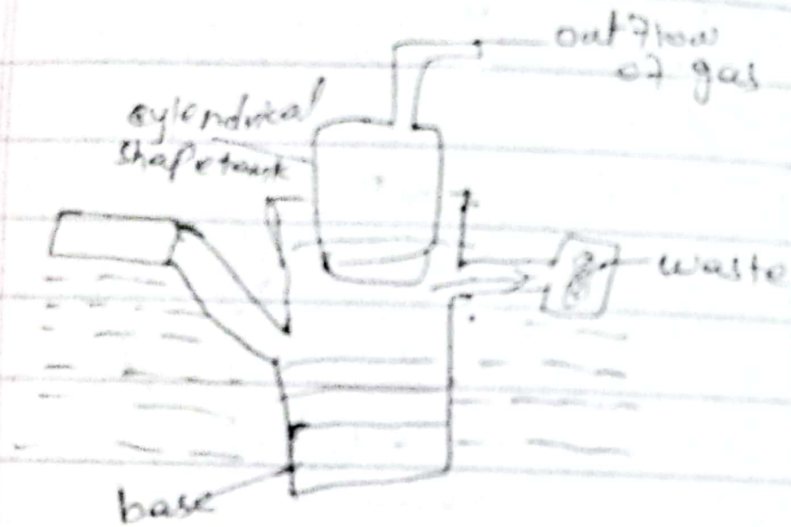 outflow
of gas
cylendrical
shape tank
waste
base